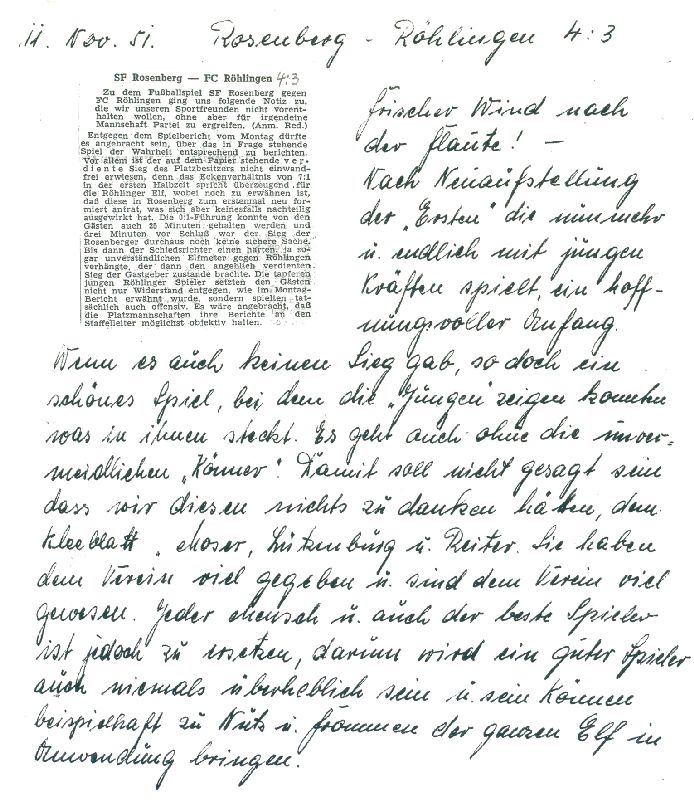 11. Nov. 51. Rosenberg - Röhlingen 4:3
SF Rosenberg — FC Röhlingen 4:3
Zu dem Fußballspiel SF Rosenberg gegen
FC Röhlingen ging uns folgende Notiz zu,
die wir unseren Sportfreunden nicht vorent-
halten wollen, ohne aber für irgendeine
Mannschaft Partei zu ergreifen. (Anm. Red.)
Entgegen dem Spielbericht vom Montag dürfte
es angebracht sein, über das in Frage stehende
Spiel der Wahrheit entsprechend zu berichten.
Vor allem ist der auf dem Papier stehende ver-
diente Sieg des Platzbesitzers nicht einwand-
frei erwiesen, denn das Eckenverhältnis von 7:1
in der ersten Halbzeit spricht überzeugend für
die Röhlinger Elf, wobei noch zu erwähnen ist,
daß diese in Rosenberg zum erstenmal neu for-
miert antrat, was sich aber keinesfalls nachteilig
ausgewirkt hat. Die 0:1-Führung konnte von den
Gästen auch 25 Minuten gehalten werden und
drei Minuten vor Schluß war der Sieg der
Rosenberger durchaus noch keine sichere Sache.
Bis dann der Schiedsrichter einen harten, ja so-
gar unverständlichen Elfmeter gegen Röhlingen
verhängte, der dann den angeblich verdienten
Sieg der Gastgeber zustande brachte. Die tapferen
jungen Röhlinger Spieler setzten den Gästen
nicht nur Widerstand entgegen, wie im Montag-
Bericht erwähnt wurde, sondern spielten tat-
sächlich auch offensiv. Es wäre angebracht, daß
die Platzmannschaften ihre Berichte an den
Staffelleiter möglichst objektiv halten.
frischer Wind nach
der flaute! —
Nach Neuaufstellung
der „Ersten" die nunmehr
u. endlich mit jungen
Kräften spielt, ein hoff-
nungsvoller Anfang.
Wenn es auch keinen Sieg gab, so doch ein
schönes Spiel, bei dem die „Jungen" zeigen konnten
was in ihnen steckt. Es geht auch ohne die unver-
meidlichen „Könner". Damit soll nicht gesagt sein
dass wir diesen nichts zu danken hätten, dem
Kleeblatt, Moser, Lützenburg u. Reiter. Sie haben
dem Verein viel gegeben u. sind dem Verein viel
gewesen. Jeder Mensch u. auch der beste Spieler
ist jedoch zu ersetzen, darum wird ein guter Spieler
auch niemals überheblich sein u. sein Können
beispielhaft zu Nutz u. frommen der ganzen Elf in
Anwendung bringen.